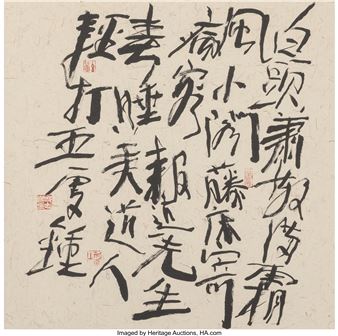 白頭蕭散满霜
風小阁藤床寄
病容報道先生
春睡美道人
輕打五更鍾
Imaged by Heritage Auctions, HA.com